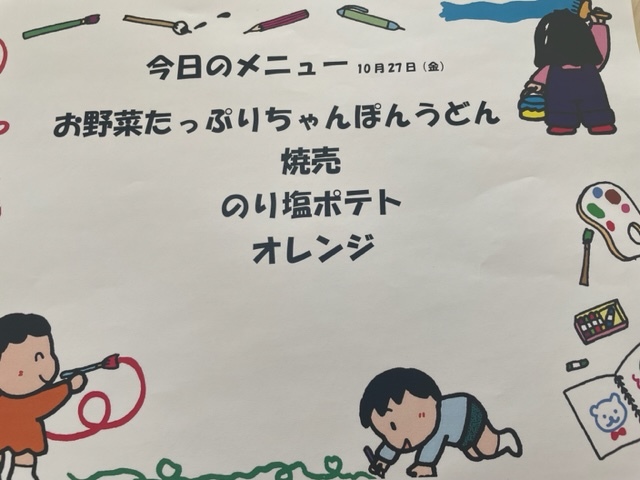 今日のメニュー 10月27日（金）
お野菜たっぷりちゃんぽんうどん
焼売
のり塩ポテト
オレンジ